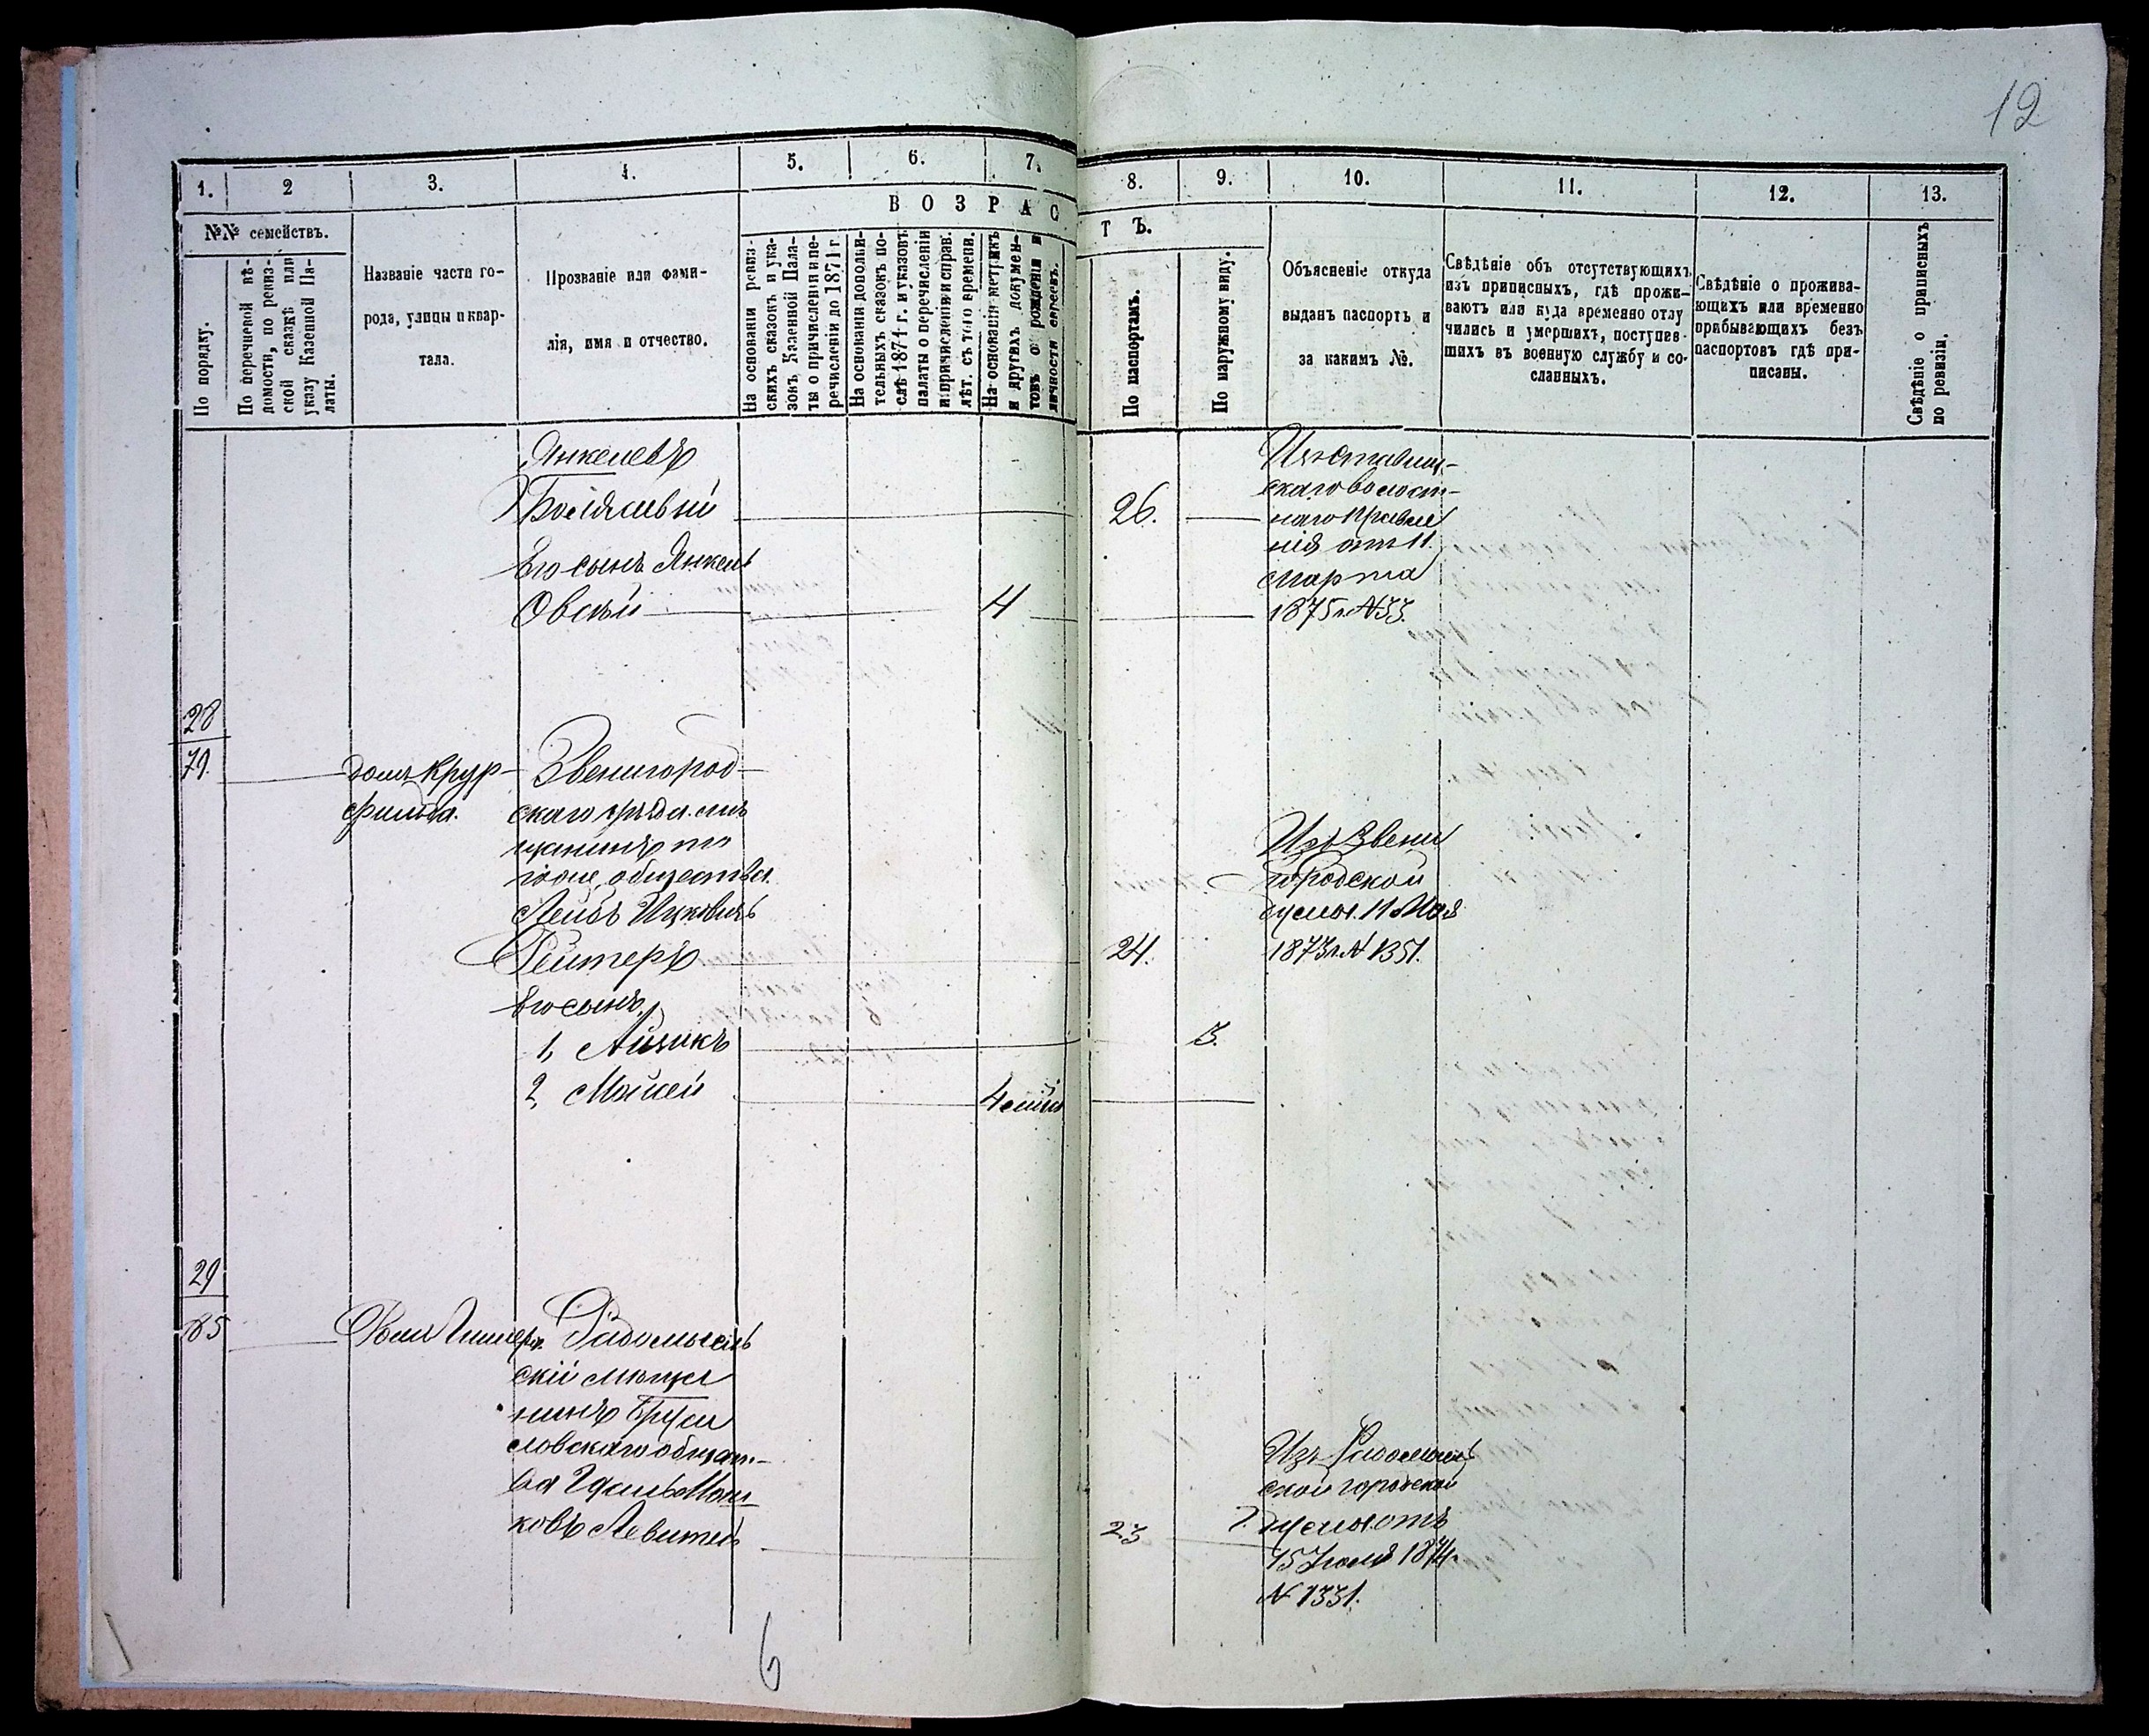 12
1.
2
3.
4.
5.
6.
7.
8.
9.
10.
11.
12.
13.
№№ семействъ.
В О З Р А С
Т Ъ.
По порядку.
По перечневой вѣ-
домости, по ревиз-
ской сказкѣ или
указу Казенной Па-
латы.
Названіе части го-
рода, улицы и квар-
тала.
Прозваніе или фами-
лія, имя и отчество.
На основаніи ревиз-
скихъ сказокъ и ука-
зокъ Казенной Пала-
ты о причисленіи и пе-
речисленіи до 1871 г.
На основаніи дополни-
тельныхъ сказокъ по-
слѣ 1871 г. и указовъ
палаты о перечисленіи
и причисленіи и справ.
лѣт. съ того времени.
На основаніи метрикъ
и другихъ докумен-
товъ о рожденіи и
личности евреевъ.
По паспортамъ.
По наружному виду.
Объясненіе откуда
выданъ паспортъ и
за какимъ №.
Свѣдѣніе объ отсутствующихъ
изъ приписныхъ, гдѣ прожи-
ваютъ или куда временно отлу
чились и умершихъ, поступив-
шихъ въ военную службу и со-
сланныхъ.
Свѣдѣніе о прожива-
ющихъ или временно
прибывающихъ безъ
паспортовъ гдѣ при-
писаны.
Свѣдѣніе о приписныхъ
по ревизіи.
Янкелевъ
26.
Изъ Ставищ-
скаго волост-
наго правле
нія отъ 11.
марта
1875 г. № 33.
Его сынъ Янкель
Овсѣй
4
28
79.
домъ Крур-
фильда.
Звенигород-
скаго уѣзда мѣ
щанинъ
общества
Лейбъ Ицковичъ
Рейтеръ
24.
Изъ Звени
городской
думы. 11 Мая
1873 г. № 1351.
Его сынъ.
1, Айзикъ
3.
2, Мойсей
4
29
85
Домъ
Радомысль
скій мѣща
нинъ Бруси
ловскаго общест-
ва Мош
ковъ Левитъ
23
Изъ Радомысль
ской городской
думы. отъ
15 Іюля 1874 г.
№ 1331.
6